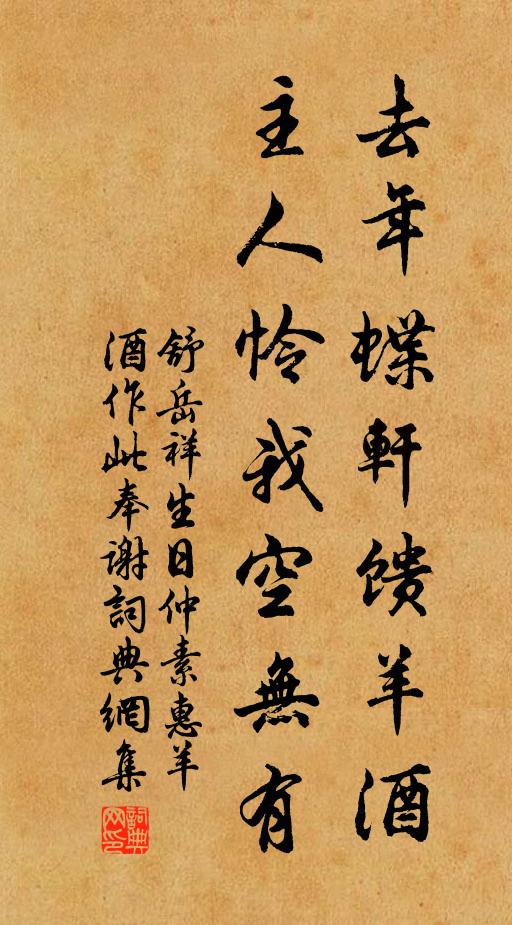 去年蝶軒馈羊酒
主人怜我空無有
舒岳祥生日仲素惠羊
酒作此奉谢詞典網集
詞典网印